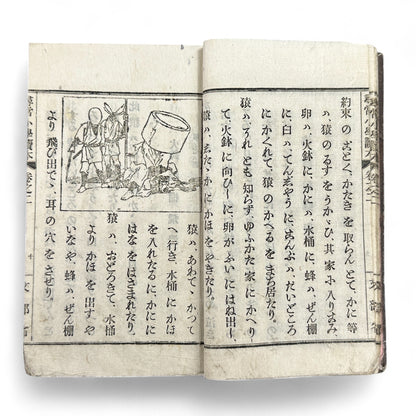 約束のごとく、かたきを取らんとて、かに等
ハ、猿のるすをうかゞひ、其家に入りこみ
卵ハ、火鉢に、かにハ、水桶に、蜂ハ、ぜん棚
に、臼ハ、てんじやうに、こんぶハ、だいどころ
にかくれて、猿のかへるをまち居たり。
猿ハ、それとも知らず、ゆふかた家にかへり
て、火鉢に向ひしに、卵がふいにはね出し、
猿ハ、かほに、かにかほをやきたり。
猿ハ、あわてゝ、かつて
へ行き、水桶にかほ
を入れなるに、かにに
はなをはさまれたり。
猿ハ、おどろきて、水桶
よりかほを出すや
いなや、蜂ハ、ぜん棚
より飛び出でゝ、耳の穴をさせり。
尋常小學讀本
巻之二
文部省